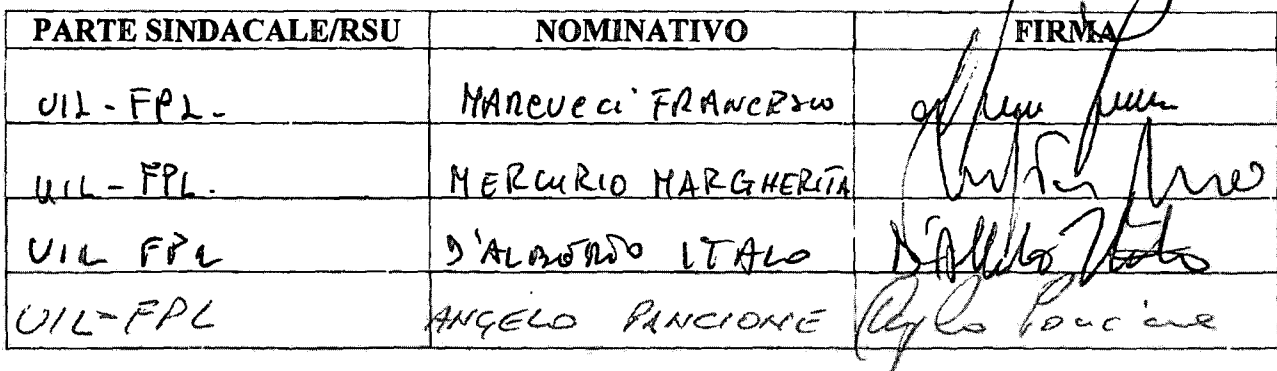 PARTE SINDACALE/RSU NOMINATIVO FIRMA
UIL-FPL- MARCUCCI FRANCESCO
UIL-FPL. MERCURIO MARGHERITA
UIL FPL D'ALBERTO ITALO D'Alberto Italo
UIL-FPL ANGELO PANCIONE Angelo Pancione